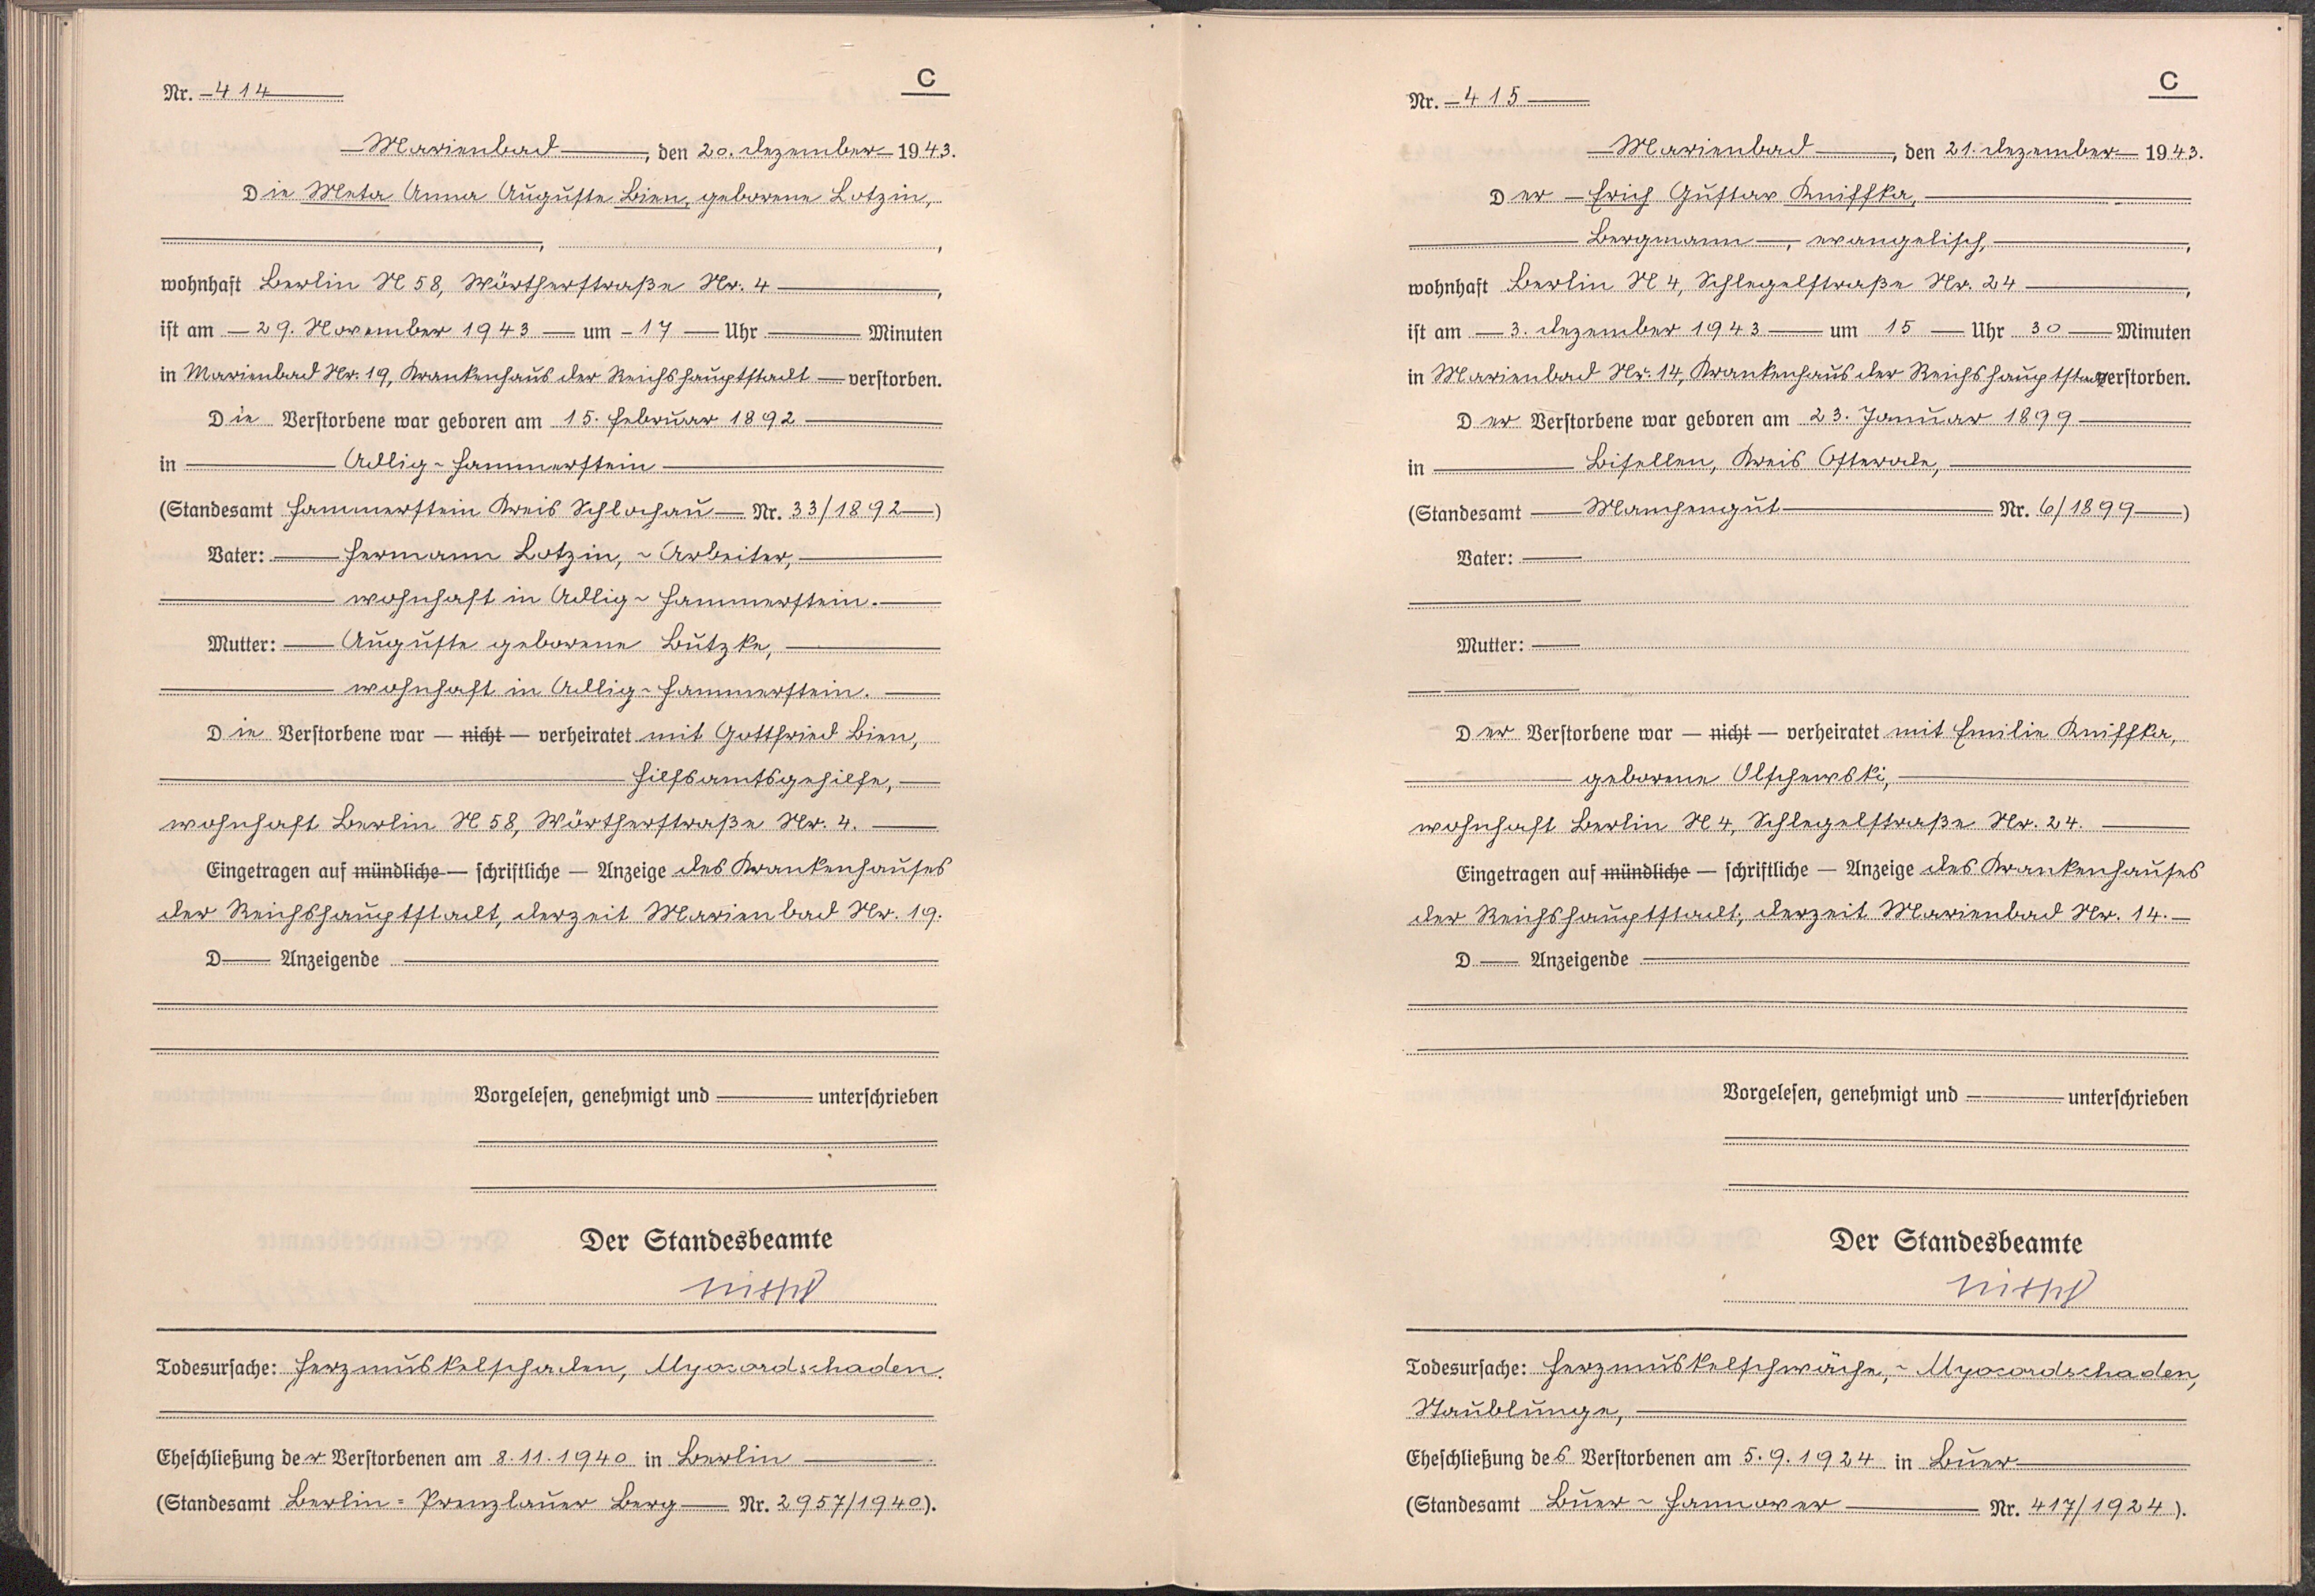 C
Nr. 414
Marienbad, den 20. Dezember 1943.
Die Meta Anna Auguste Bien, geborene Lotzin,
wohnhaft Berlin N 58, Wörtherstraße Nr. 4,
ist am 29. November 1943 um 17 Uhr Minuten
in Marienbad Nr. 19, Krankenhaus der Reichshauptstadt verstorben.
Die Verstorbene war geboren am 15. Februar 1892
in Adlig-Hammerstein
(Standesamt Hammerstein Kreis Schlochau Nr. 33/1892)
Vater: Hermann Lotzin, - Arbeiter,
wohnhaft in Adlig-Hammerstein.
Mutter: Auguste geborene Butzke,
wohnhaft in Adlig-Hammerstein.
Die Verstorbene war — nicht — verheiratet mit Gottfried Bien,
Hilfsamtsgehilfe,
wohnhaft Berlin N 58, Wörtherstraße Nr. 4.
Eingetragen auf mündliche — schriftliche — Anzeige des Krankenhauses
der Reichshauptstadt, derzeit Marienbad Nr. 19.
D Anzeigende
Vorgelesen, genehmigt und unterschrieben
Der Standesbeamte
Todesursache: Herzmuskelschaden, Myocardschaden.
Eheschließung der Verstorbenen am 8.11.1940 in Berlin
(Standesamt Berlin-Prenzlauer Berg Nr. 2957/1940).
C
Nr. 415
Marienbad, den 21. Dezember 1943.
Der Erich Gustav Kniffka,
Bergmann, evangelisch,
wohnhaft Berlin N 4, Schlegelstraße Nr. 24,
ist am 3. Dezember 1943 um 15 Uhr 30 Minuten
in Marienbad Nr. 14, Krankenhaus der Reichshauptstadt verstorben.
Der Verstorbene war geboren am 23. Januar 1899
in Bisellen, Kreis Osterode,
(Standesamt Manchengut Nr. 6/1899)
Vater:
Mutter:
Der Verstorbene war — nicht — verheiratet mit Emilie Kniffka,
geborene Olschewski,
wohnhaft Berlin N 4, Schlegelstraße Nr. 24.
Eingetragen auf mündliche — schriftliche — Anzeige des Krankenhauses
der Reichshauptstadt, derzeit Marienbad Nr. 14.
D Anzeigende
Vorgelesen, genehmigt und unterschrieben
Der Standesbeamte
Todesursache: Herzmuskelschwäche, - Myocardschaden,
Staublunge,
Eheschließung des Verstorbenen am 5.9.1924 in Buer
(Standesamt Buer-Hannover Nr. 417/1924).